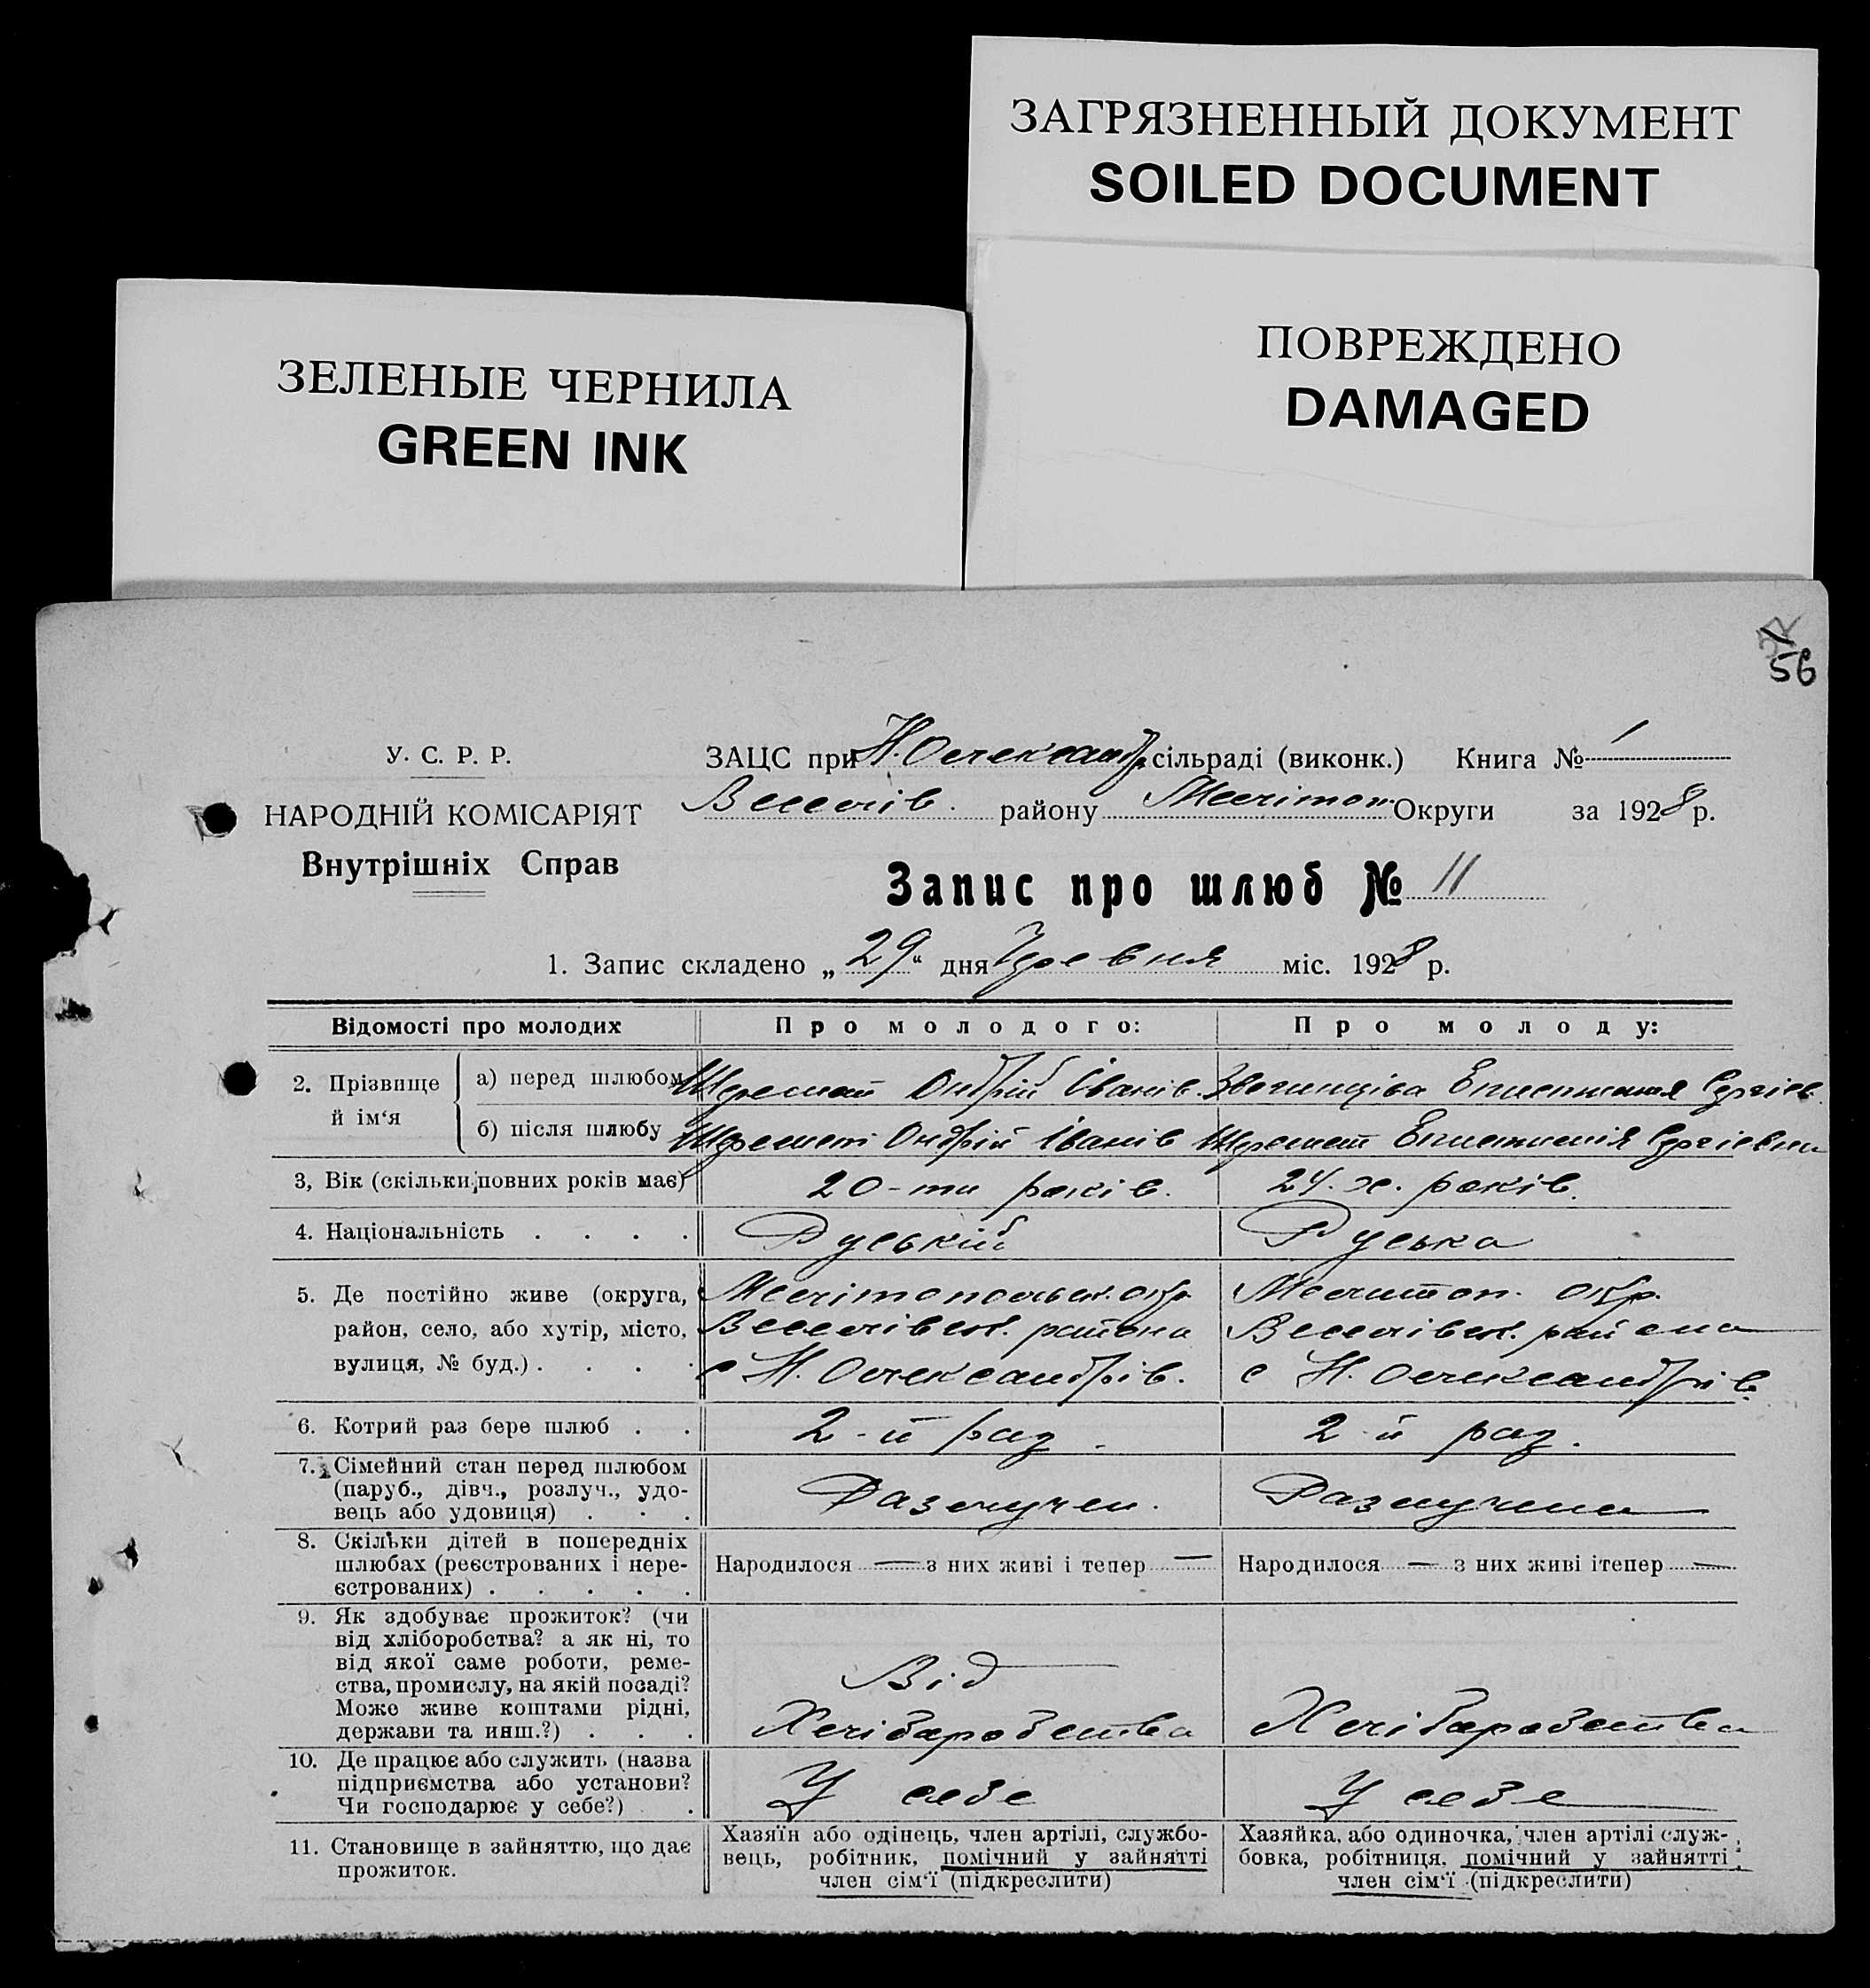 ЗАГРЯЗНЕННЫЙ ДОКУМЕНТ
SOILED DOCUMENT
ПОВРЕЖДЕНО
DAMAGED
ЗЕЛЕНЫЕ ЧЕРНИЛА
GREEN INK
56
У. С. Р. Р.
НАРОДНІЙ КОМІСАРІЯТ
Внутрішніх Справ
ЗАЦС при Н. Олександр. сільраді (виконк.) Книга № 1
Веселів. району Мелітоп. Округи за 1928 р.
Запис про шлюб № 11
1. Запис складено „29“ дня міс. 1928 р.
Відомості про молодих Про молодого: Про молоду:
2. Прізвище й ім‘я
а) перед шлюбом Шеремет Ондрій Іванів. Звегинціва Сергіев.
б) після шлюбу Шеремет Ондрій Іванів Шеремет Сергіевна
3, Вік (скільки повних років має) 20-ти років. 24-х. років.
4. Національність . . . . Руський Руська
5. Де постійно живе (округа, Мелітопольск. окр. Мелитоп. окр.
район, село, або хутір, місто, Веселівск. района Веселівск. района
вулиця, № буд.) . . . . с Н. Олександрів. с Н. Олександрів.
6. Котрий раз бере шлюб . . 2-й раз. 2-й раз.
7. Сімейний стан перед шлюбом
(паруб., дівч., розлуч., удо-
вець або удовиця) . . . Разлучен. Разлучина
8. Скільки дітей в попередніх
шлюбах (реєстрованих і нере-
єстрованих) . . . . .
Народилося — з них живі і тепер — Народилося — з них живі ітепер —
9. Як здобуває прожиток? (чи
від хліборобства? а як ні, то
від якої саме роботи, реме-
ства, промислу, на якій посаді?
Може живе коштами рідні,
держави та инш.?) . . .
Від
Хлібаробства Хлібаробства
10. Де працює або служить (назва
підприємства або установи?
Чи господарює у себе?) . .
У себе У себе
11. Становище в зайняттю, що дає
прожиток.
Хазяїн або одінець, член артілі, службо-
вець, робітник, помічний у зайнятті
член сім‘ї (підкреслити)
Хазяйка, або одиночка, член артілі служ-
бовка, робітниця, помічний у зайнятті
член сім‘ї (підкреслити)